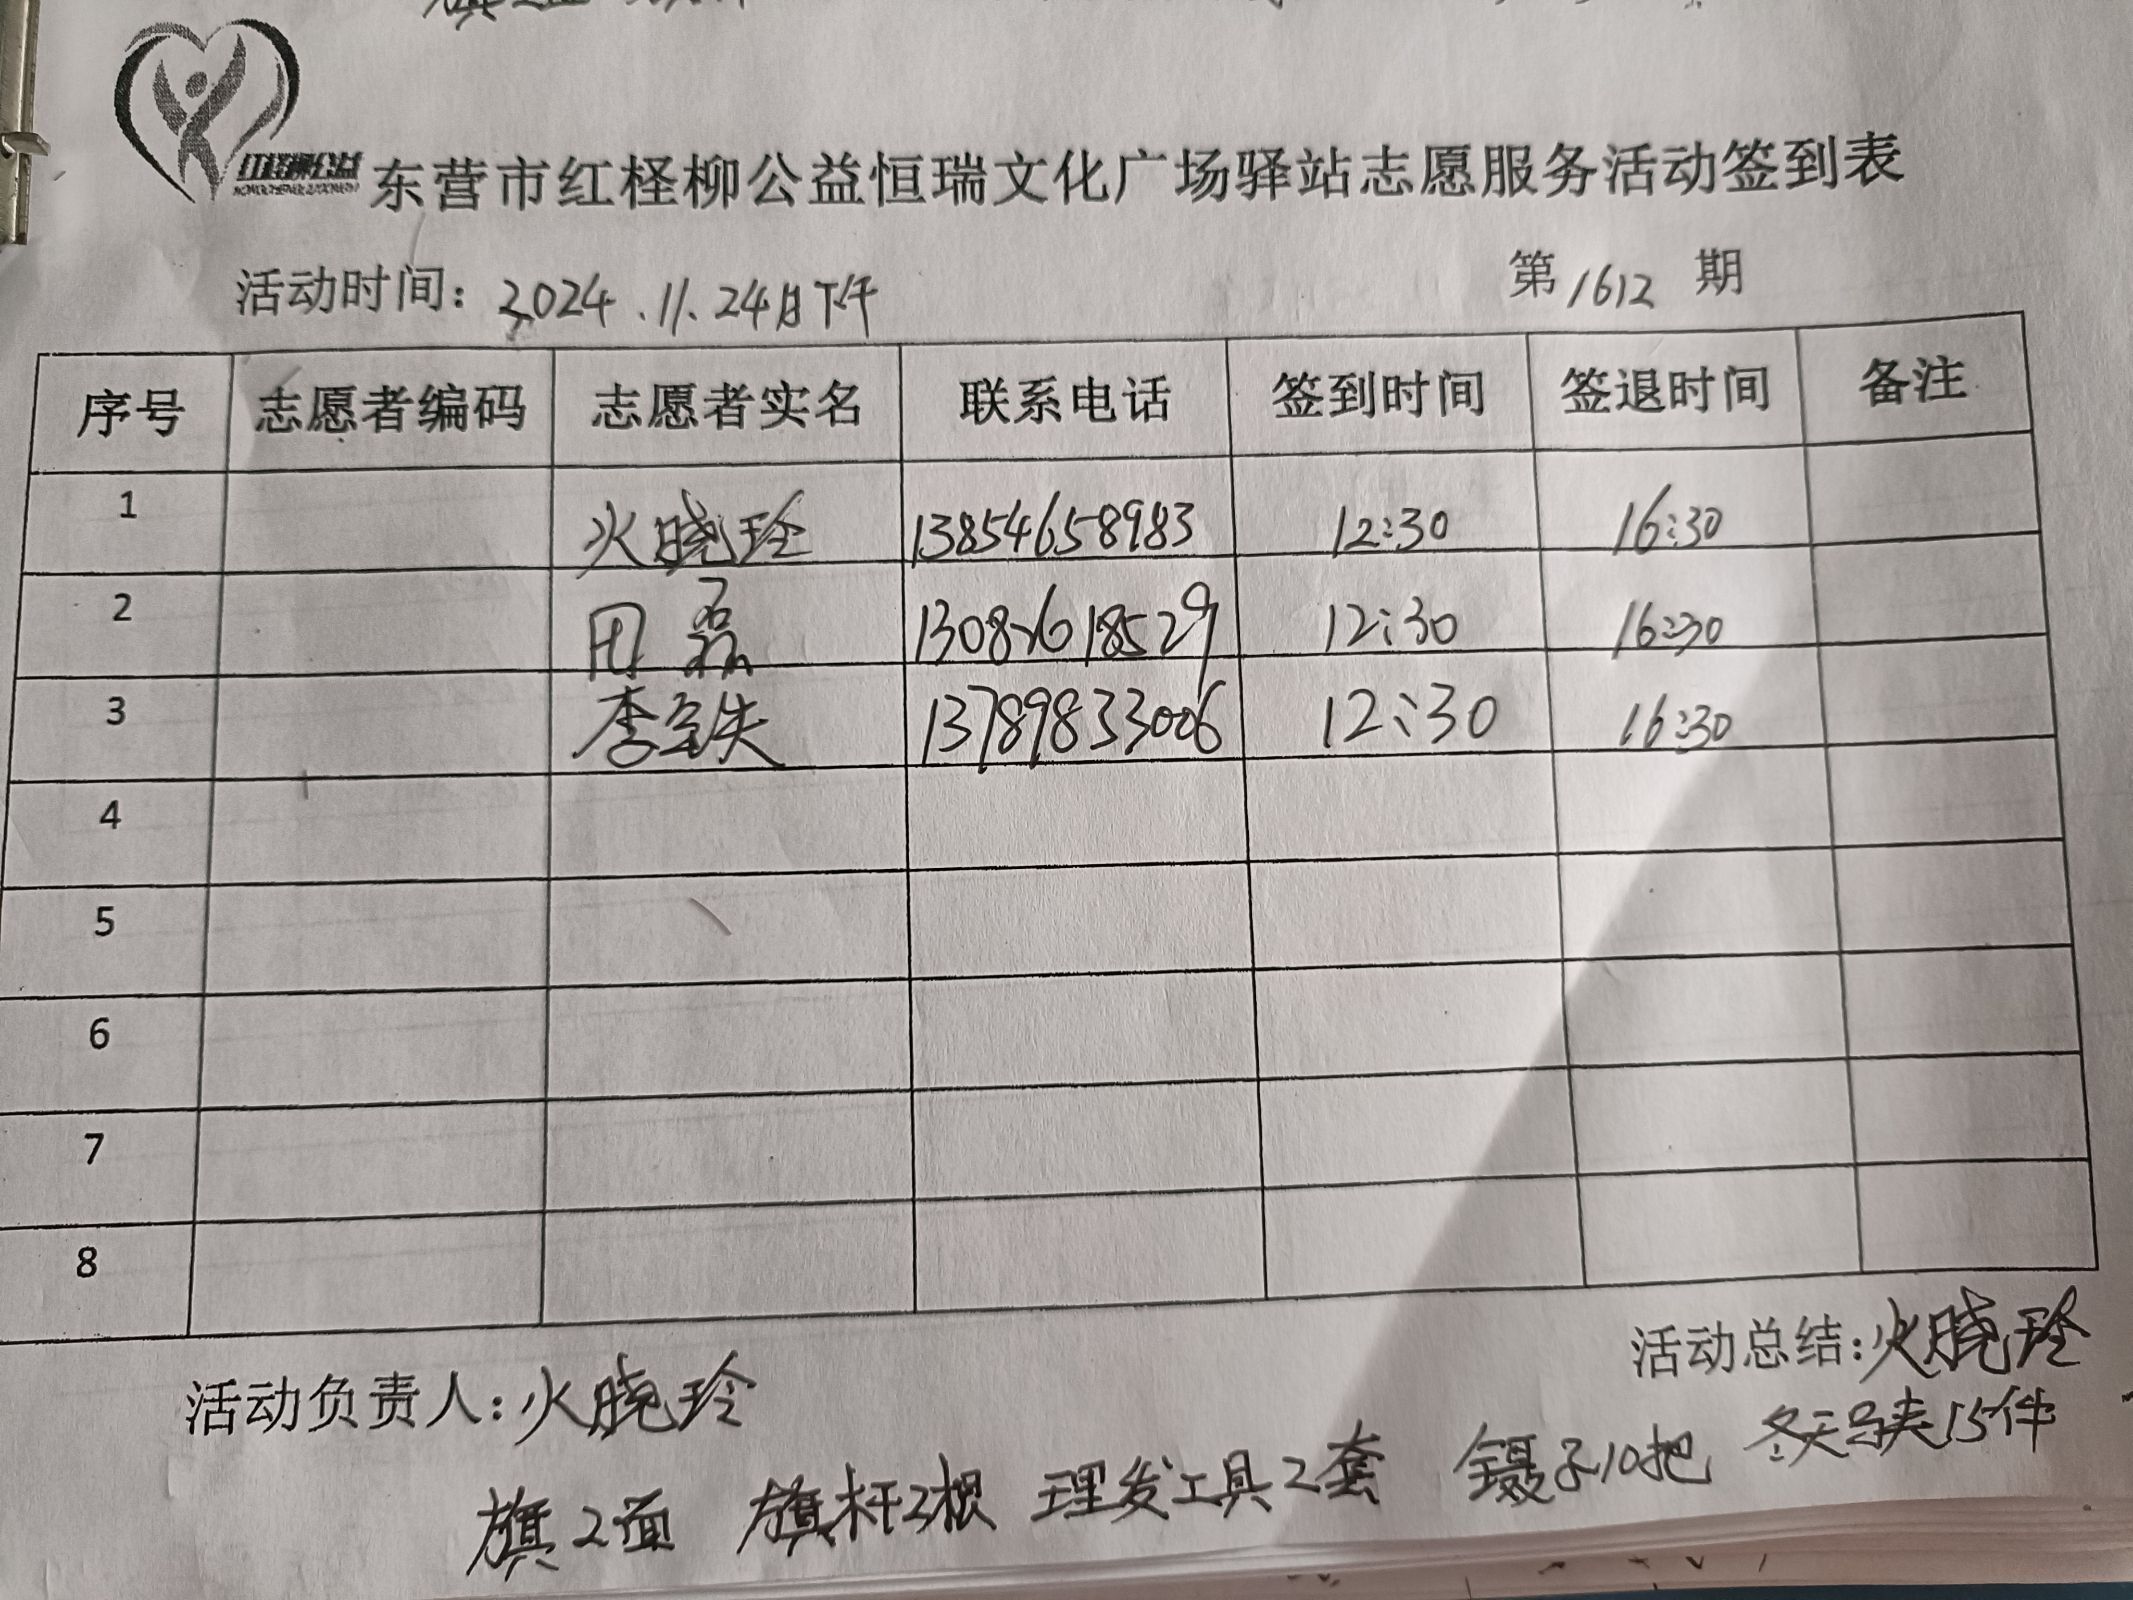 红柽柳公益
东营市红柽柳公益恒瑞文化广场驿站志愿服务活动签到表
活动时间：2024.11.24日下午 第1612期
序号 志愿者编码 志愿者实名 联系电话 签到时间 签退时间 备注
1 火晓玲 13854658983 12:30 16:30
2 田磊 12:30 16:30
3 李宝铁 13789833006 12:30 16:30
4
5
6
7
8
活动负责人：火晓玲 活动总结：火晓玲
旗2面 旗杆2根 理发工具2套 镊子10把 冬天马夹15件